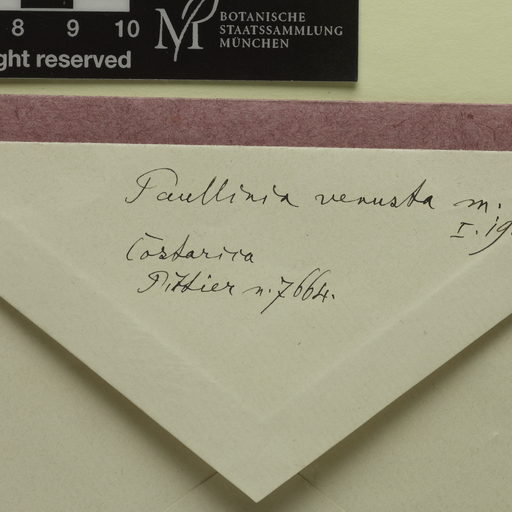 8 9 10
ght reserved
M
BOTANISCHE
STAATSSAMMLUNG
MÜNCHEN
Paullinia venusta m.
I. 19
Costarica
Pittier n. 7664.